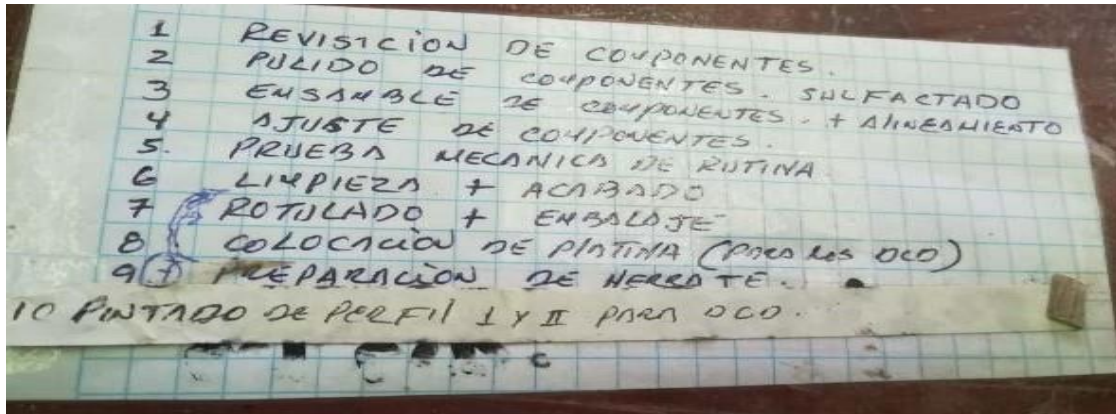 1 REVISICION DE COMPONENTES.
2 PULIDO DE COMPONENTES. SULFACTADO
3 ENSAMBLE DE COMPONENTES. + ALINEAMIENTO
4 AJUSTE DE COMPONENTES.
5. PRUEBA MECANICA DE RUTINA
6 LIMPIEZA + ACABADO
7 ROTULADO + EMBALAJE
8 COLOCACION DE PLATINA (PARA LOS DCO)
9 (7) PREPARACION DE
10 PINTADO DE PERFIL I Y II PARA DCO.